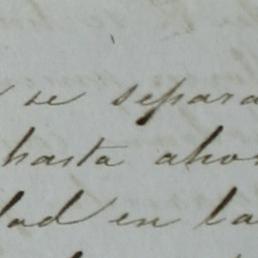 se separa
hasta ahor
dad en la